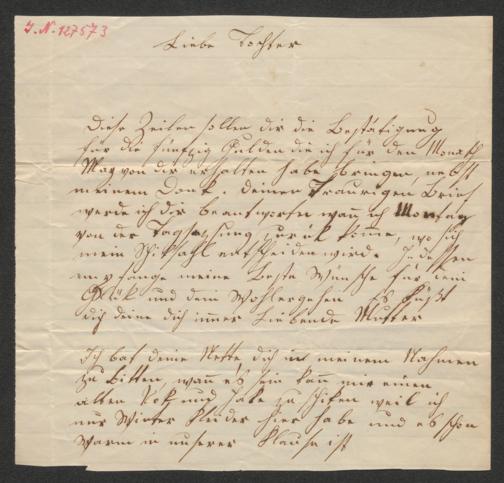 I. N. 127573
Liebe Tochter
Diese Zeilen sollen dir die Bestätigung
für die fünfzig Gulden die ich für den Monath
May von dir erhalten habe bringen, nebst
meinem Dank. deinen Traurigen Brief
werde ich dir beantworten wann ich Montag
von der Tagsatzung zurük kome, wo sich
mein Schiksahl entscheiden wird. Indessen
empfange meine Beste Wünsche für dein
Glük und dein Wohlergehen Es küßt
dich deine dich immer Liebende Mutter
Ich bat deine Nette dich in meinem Nahmen
zu bitten, wann es sein kann mir einen
alten Rok und Jake zu schiken weil ich
nur Winter Kleider hier habe und es schon
warm in unserer Klause ist